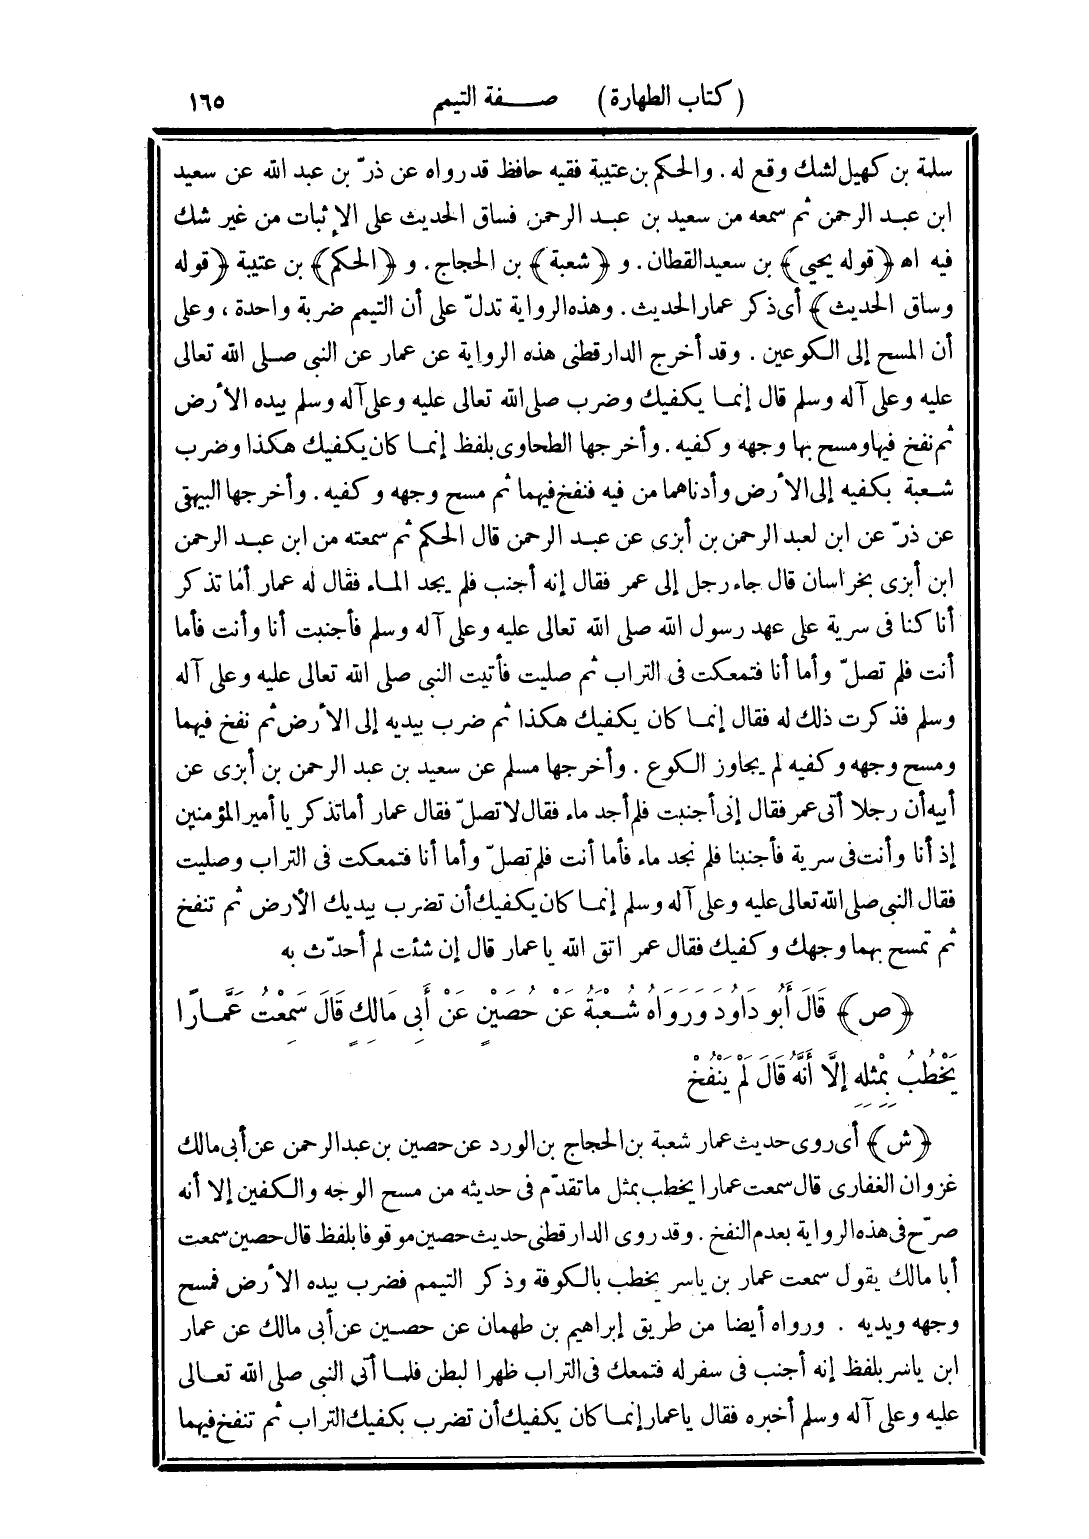 (كتاب الطهارة) صفة التيمم ١٦٥
سلمة بن كهيل لشك وقع له. والحكم بن عتيبة فقيه حافظ قد رواه عن ذرّ بن عبد الله عن سعيد
ابن عبد الرحمن ثم سمعه من سعيد بن عبد الرحمن فساق الحديث على الإثبات من غير شك
فيه اه ﴿قوله يحيى﴾ بن سعيد القطان. و﴿شعبة﴾ بن الحجاج. و﴿الحكم﴾ بن عتيبة ﴿قوله
وساق الحديث﴾ أى ذكر عمار الحديث. وهذه الرواية تدلّ على أن التيمم ضربة واحدة، وعلى
أن المسح إلى الكوعين. وقد أخرج الدارقطنى هذه الرواية عن عمار عن النبى صلى الله تعالى
عليه وعلى آله وسلم قال إنما يكفيك وضرب صلى الله تعالى عليه وعلى آله وسلم بيده الأرض
ثم نفخ فيها ومسح بها وجهه وكفيه. وأخرجها الطحاوى بلفظ إنما كان يكفيك هكذا وضرب
شعبة بكفيه إلى الأرض وأدناهما من فيه فنفخ فيهما ثم مسح وجهه وكفيه. وأخرجها البيهقى
عن ذرّ عن ابن لعبد الرحمن بن أبزى عن عبد الرحمن قال الحكم ثم سمعته من ابن عبد الرحمن
ابن أبزى بخراسان قال جاء رجل إلى عمر فقال إنه أجنب فلم يجد الماء فقال له عمار أما تذكر
أنا كنا فى سرية على عهد رسول الله صلى الله تعالى عليه وعلى آله وسلم فأجنبت أنا وأنت فأما
أنت فلم تصلّ وأما أنا فتمعكت فى التراب ثم صليت فأتيت النبى صلى الله تعالى عليه وعلى آله
وسلم فذكرت ذلك له فقال إنما كان يكفيك هكذا ثم ضرب بيديه إلى الأرض ثم نفخ فيهما
ومسح وجهه وكفيه لم يجاوز الكوع. وأخرجها مسلم عن سعيد بن عبد الرحمن بن أبزى عن
أبيه أن رجلا أتى عمر فقال إنى أجنبت فلم أجد ماء فقال لا تصلّ فقال عمار أما تذكر يا أمير المؤمنين
إذ أنا وأنت فى سرية فأجنبنا فلم نجد ماء فأما أنت فلم تصلّ وأما أنا فتمعكت فى التراب وصليت
فقال النبى صلى الله تعالى عليه وعلى آله وسلم إنما كان يكفيك أن تضرب بيديك الأرض ثم تنفخ
ثم تمسح بهما وجهك وكفيك فقال عمر اتق الله يا عمار قال إن شئت لم أحدّث به
﴿ص﴾ قَالَ أَبُو دَاوُدَ وَرَوَاهُ شُعْبَةُ عَنْ حُصَيْنٍ عَنْ أَبِى مَالِكٍ قَالَ سَمِعْتُ عَمَّارًا
يَخْطُبُ بِمِثْلِهِ إِلَّا أَنَّهُ قَالَ لَمْ يَنْفُخْ
﴿ش﴾ أى روى حديث عمار شعبة بن الحجاج بن الورد عن حصين بن عبد الرحمن عن أبى مالك
غزوان الغفارى قال سمعت عمارا يخطب بمثل ما تقدّم فى حديثه من مسح الوجه والكفين إلا أنه
صرّح فى هذه الرواية بعدم النفخ. وقد روى الدارقطنى حديث حصين موقوفا بلفظ قال حصين سمعت
أبا مالك يقول سمعت عمار بن ياسر يخطب بالكوفة وذكر التيمم فضرب بيده الأرض فمسح
وجهه ويديه. ورواه أيضا من طريق إبراهيم بن طهمان عن حصين عن أبى مالك عن عمار
ابن ياسر بلفظ إنه أجنب فى سفر له فتمعك فى التراب ظهرا لبطن فلما أتى النبى صلى الله تعالى
عليه وعلى آله وسلم أخبره فقال يا عمار إنما كان يكفيك أن تضرب بكفيك التراب ثم تنفخ فيهما